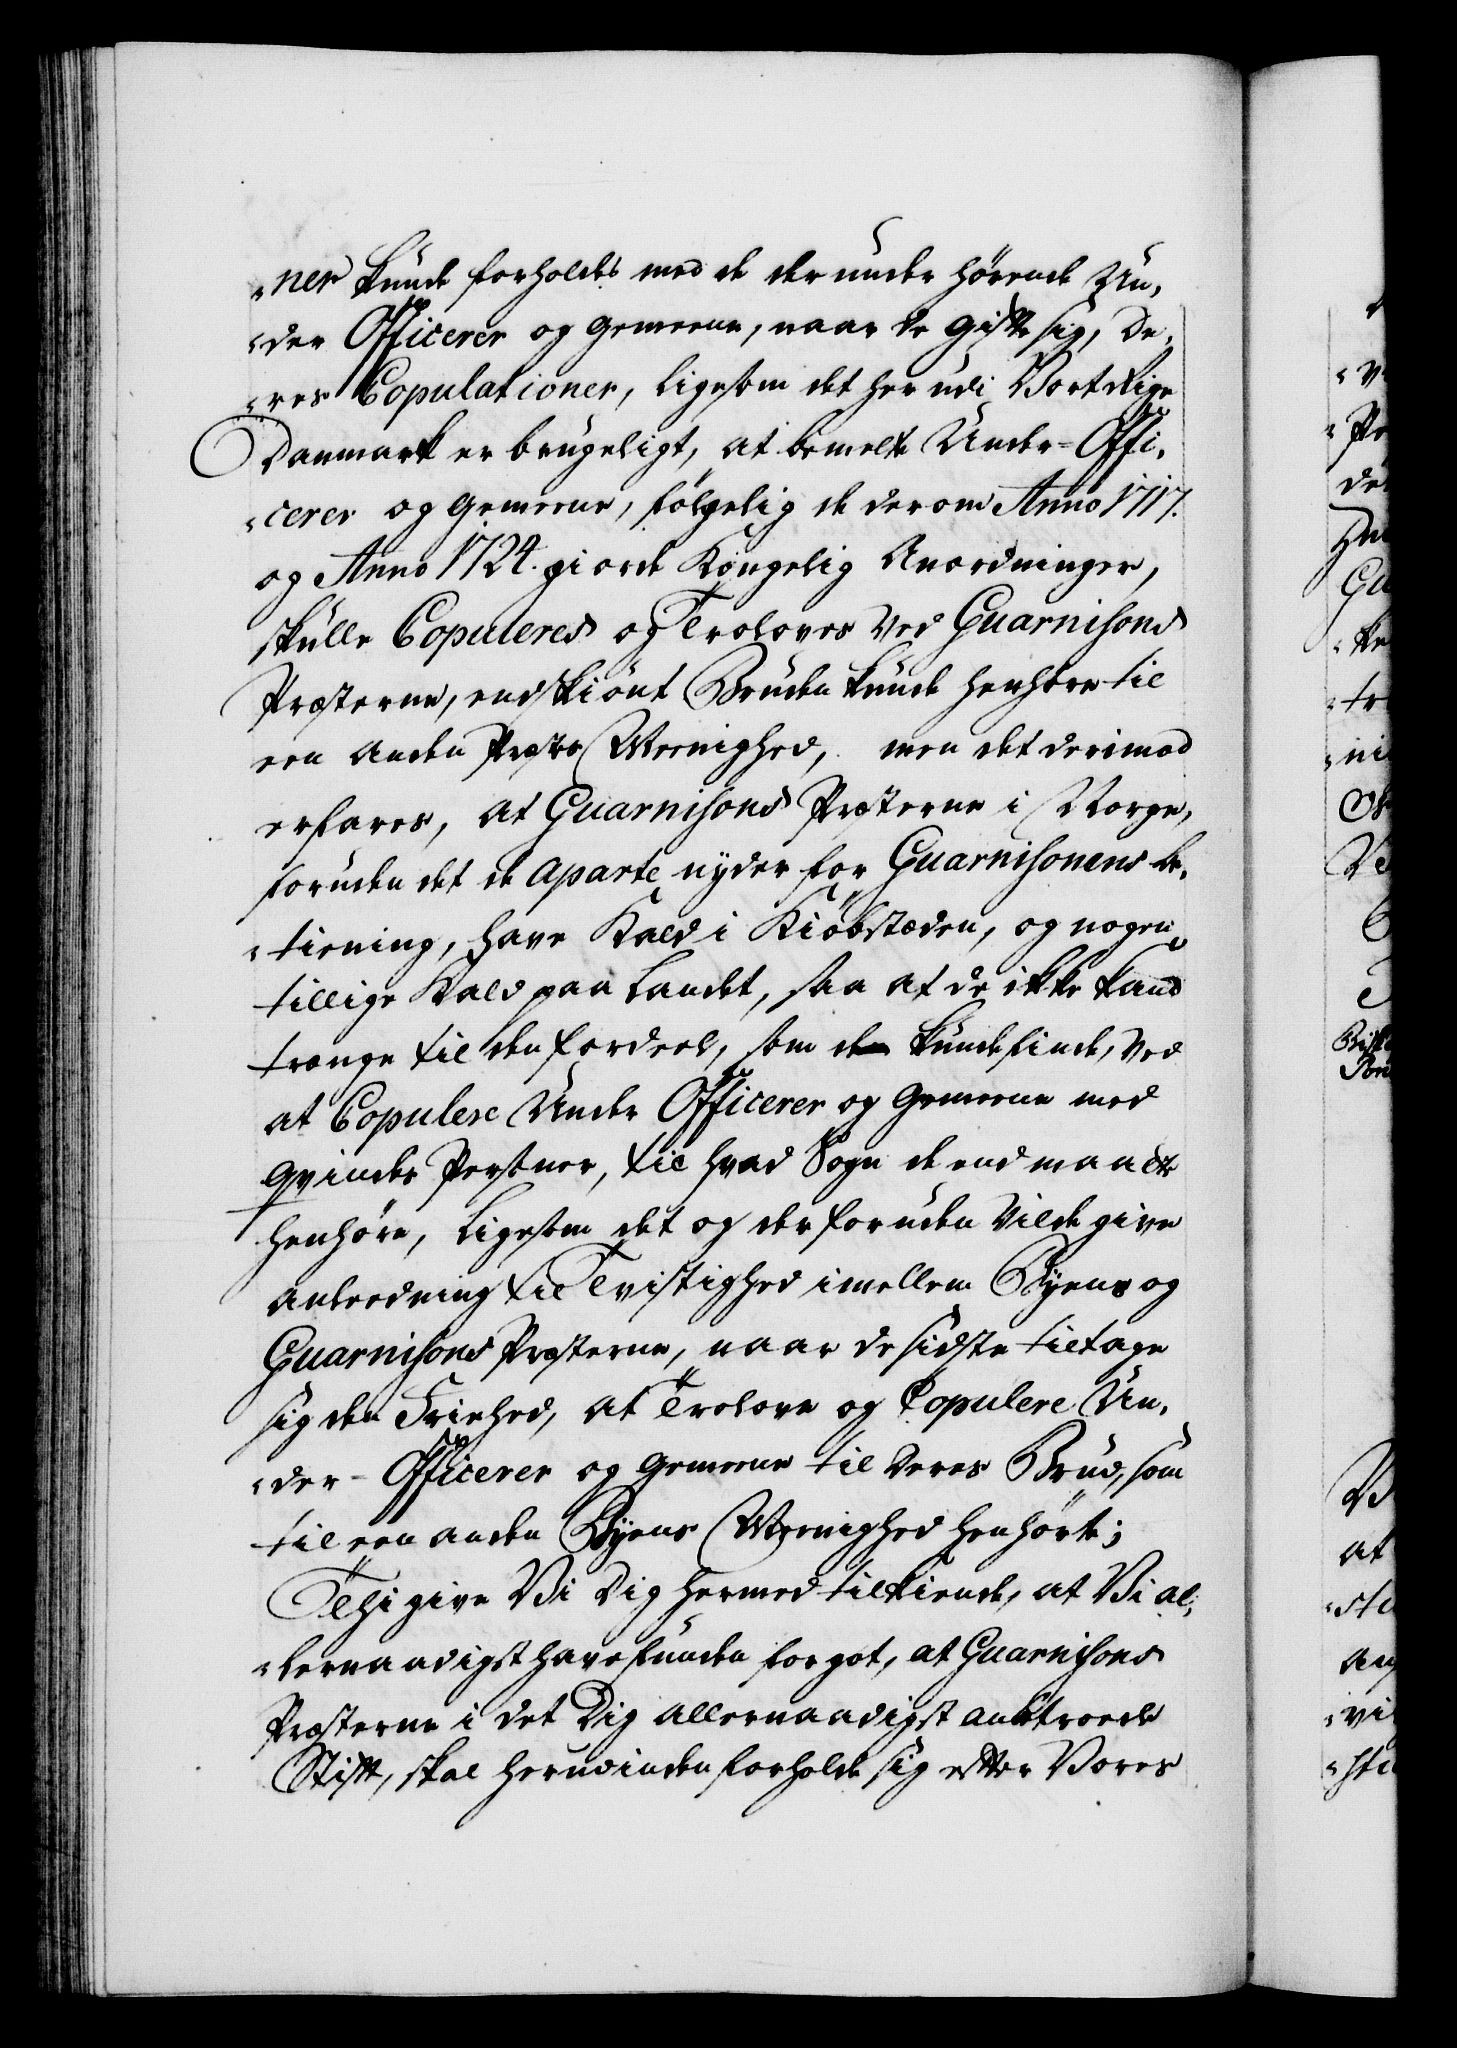 -ner kunde forholdes med de der under hörende Un-
-der Officerer og Gemeene, naar de gifte sig, De-
-res Copulationer, ligesom det her udi Vort Rige
Danmark er brugeligt, at bemelte Under-Offi-
-cerer og Gemeene, fölgelig de derom Anno 1717.
og Anno 1724. giorde Kongelig Anordninger,
skulle Copuleres og Troloves ved Guarnisons
Præsterne, endskiönt Bruden kunde henhöre til
een anden Præstes Meenighed, men det derimod
erfares, at Guarnisons Præsterne i Norge,
foruden det de aparte nyder for Guarnisonens be-
-tiening, have Kald i Kiöbstæden, og nogen
tillige Kald paa Landet, saa at de ikke kand
trænge til den fordeel, som de kunde finde, ved
at Copulere Under Officerer og Gemeene med
qvindes Personer, til hvad Sogn de end maatte
henhöre, ligesom det og der foruden vilde give
anleedning til Tvistighed imellem Byens og
Guarnisons Præsterne, naar de sidste tiltage
sig den Friehed, at Trolove og Copulere Un-
-der-Officerer og Gemeene til deres Brud, som
til een anden Byens Meenighed henhörte;
Thi give Vi Dig hermed tilkiende, at Vi al-
-lernaadigst have funden for got, at Guarnisons
Præsterne i det Dig allernaadigst anbetroede
Stift, skal herudinden forholde sig efter Vores